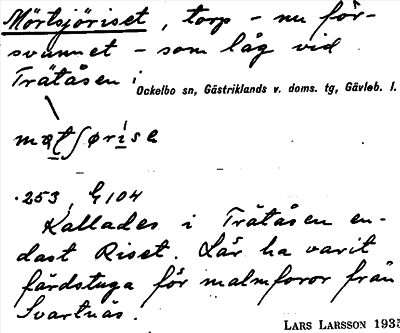 Mörtsjöriset, torp - nu för-
svunnet - som låg vid
Trätåsen i
Ockelbo sn, Gästriklands v. doms. tg, Gävleb. l.
·253, G104
Kallades i Trätåsen en-
dast Riset. Lär ha varit
färdstuga för malmforor från
Svartnäs.
LARS LARSSON 1935